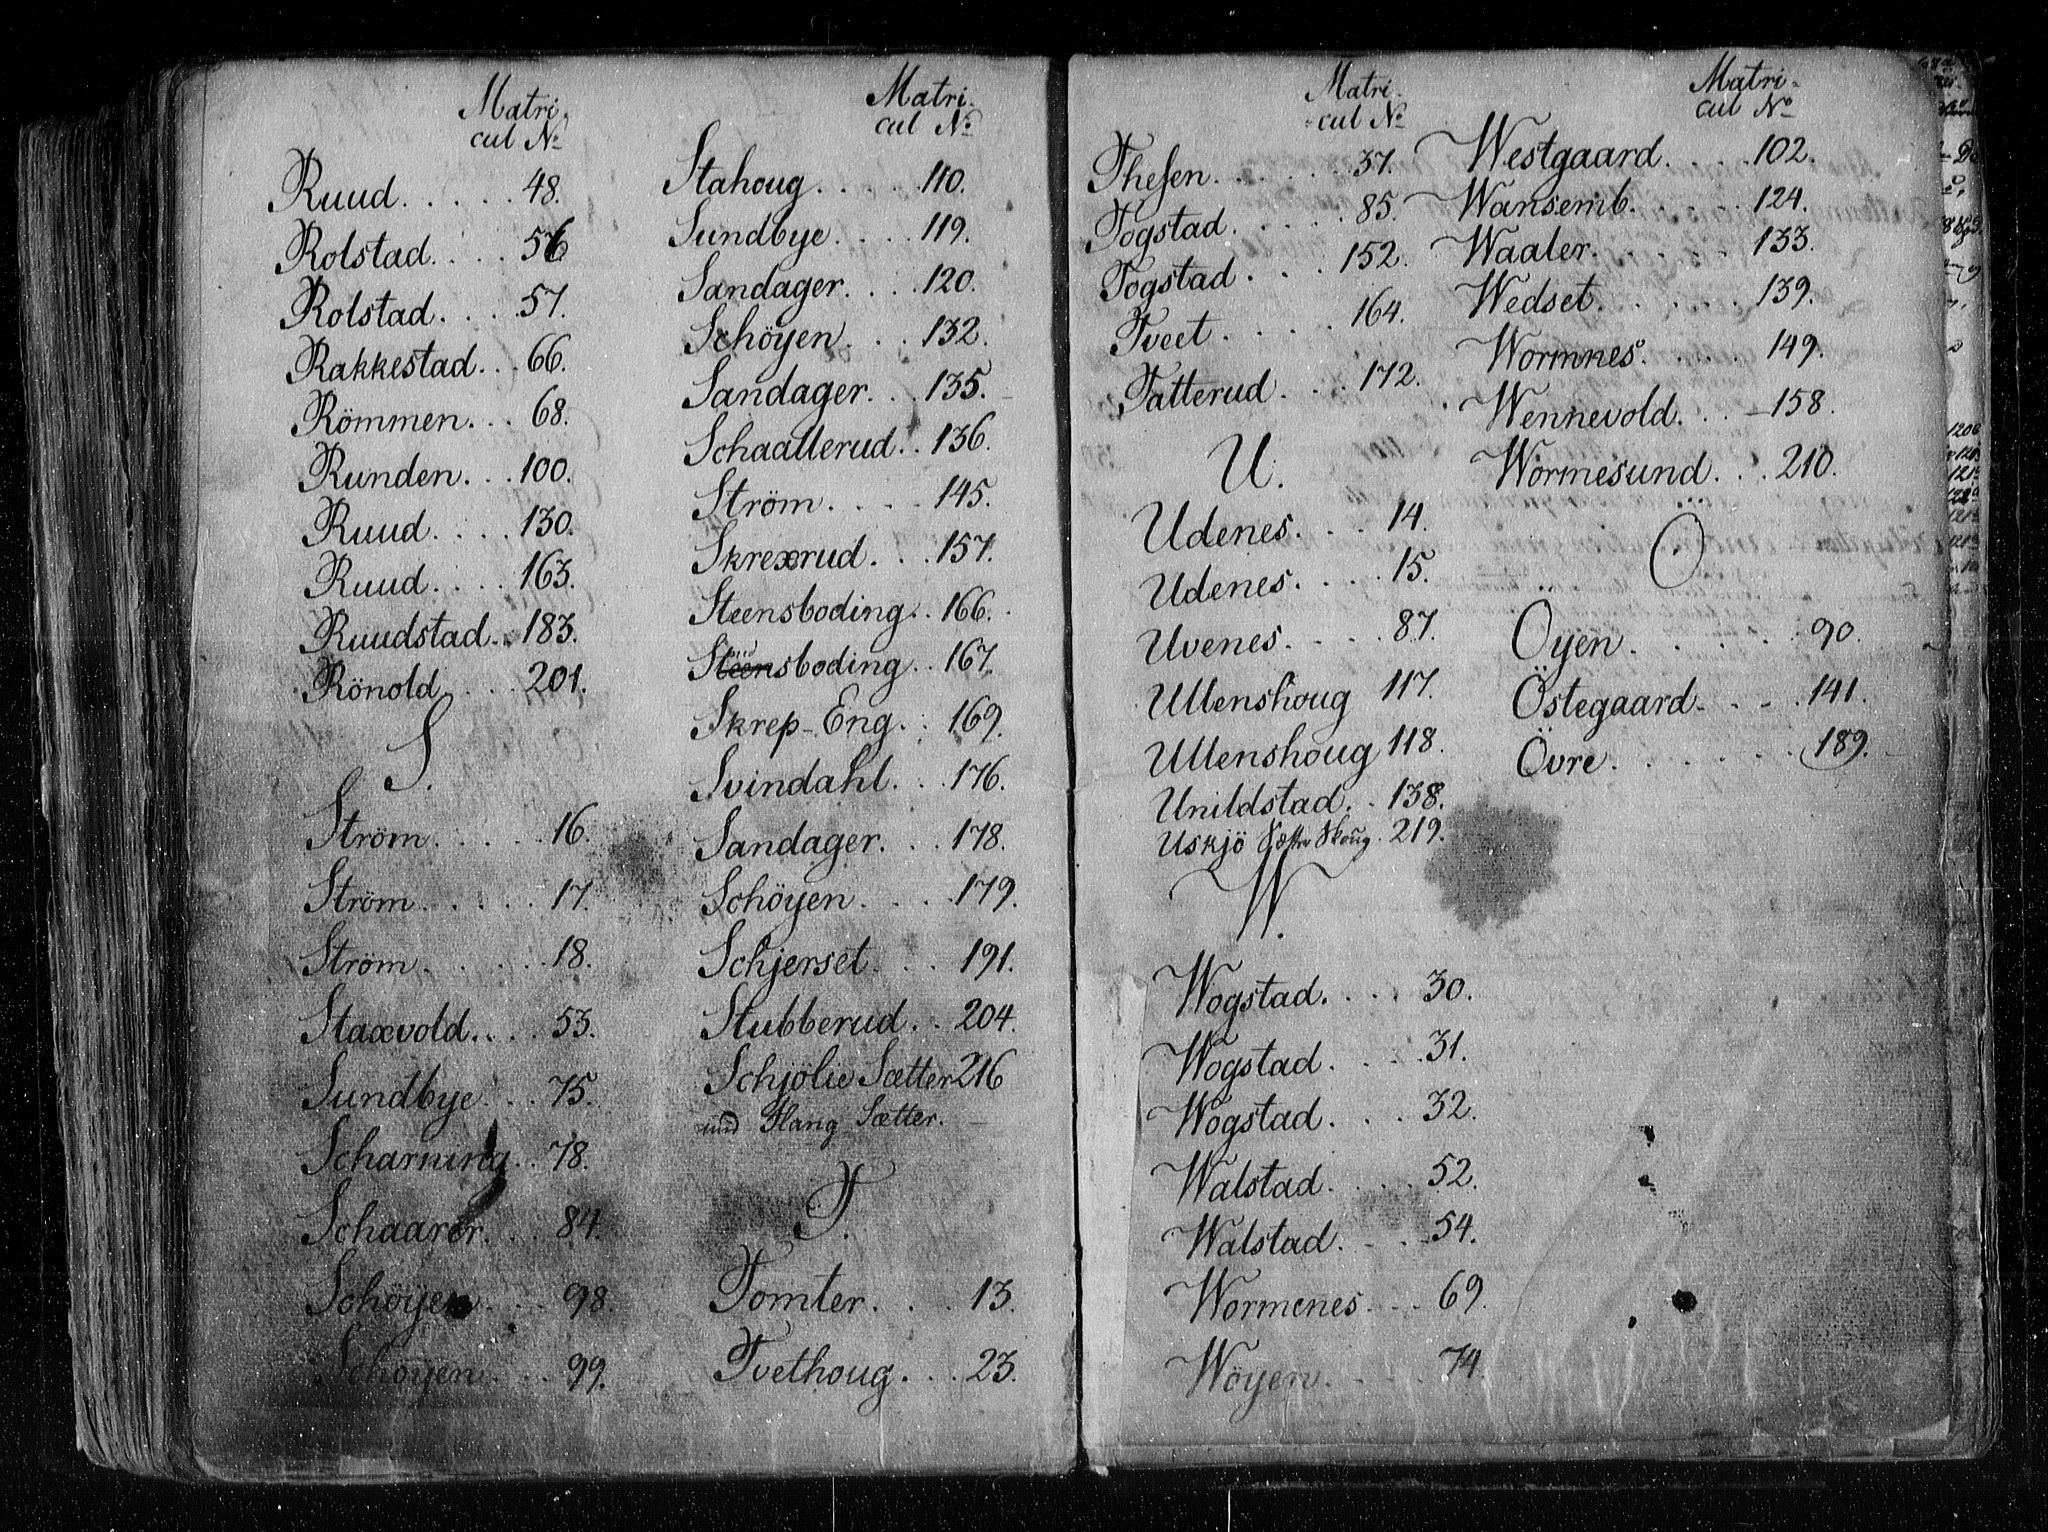 Matri-
cul No
Ruud. 48.
Rolstad. 56
Rolstad. 57.
Rakkestad. 66.
Römmen. 68.
Runden. 100.
Ruud. 130.
Ruud. 163.
Ruudstad. 183.
Rönold. 201.
S.
Ström. 16.
Ström. 17.
Ström. 18.
Staxvold. 53.
Sundbye. 75.
Scharning. 78.
Schaarer. 84.
Schöyen. 98.
Schöyen. 99.
Matri-
cul No
Stahoug. 110.
Sundbye. 119.
Sandager. 120.
Schöyen. 132.
Sandager. 135.
Schaallerud. 136.
Ström. 145.
Skrexrud. 157.
Steensboding. 166.
Steensboding. 167.
Skrep-Eng. 169.
Svindahl. 176.
Sandager. 178.
Schöyen. 179.
Schjerset. 191.
Stubberud. 204.
Schjölie Sætter 216
und Slang Sætter.
T.
Tomter. 13.
Tvethoug. 23.
Matri-
cul No
Thesen. 37.
Togstad. 85.
Togstad. 152.
Tveet. 164.
Tatterud. 172.
U.
Udenes. 14.
Udenes. 15.
Uvenes. 87.
Ullenshoug 117.
Ullenshoug 118.
Unildstad. 138.
Uskjö Sætter Skoug. 219.
W.
Wogstad. 30.
Wogstad. 31.
Wogstad. 32.
Walstad. 52.
Walstad. 54.
Wormenes. 69.
Wöyen. 74.
Matri-
cul No
Westgaard. 102.
Wansemb. 124.
Waaler. 133.
Wedset. 139.
Wormnes. 149.
Wennevold. 158.
Wormesund. 210.
Ö
Öyen. 90.
Östegaard. 141.
Övre. 189.